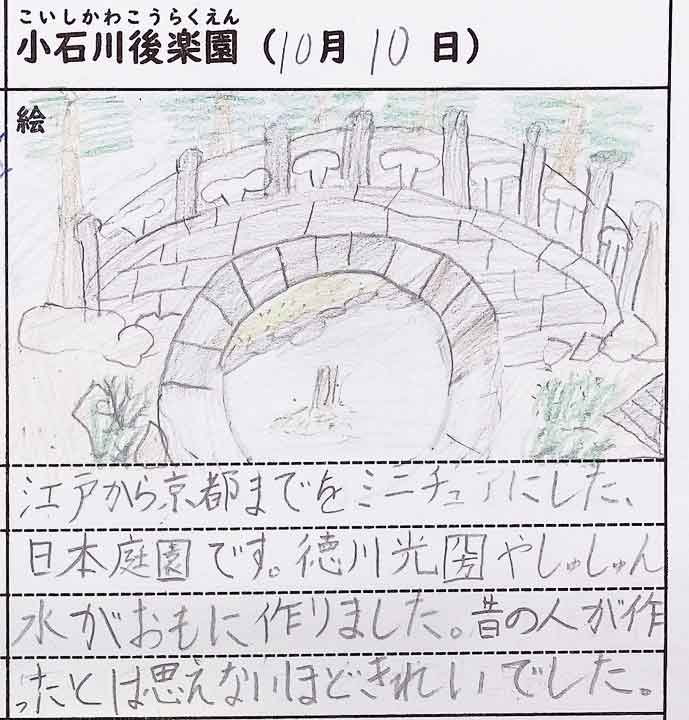 こいしかわこうらくえん
小石川後楽園（10月10日）
絵
江戸から京都までをミニチュアにした、
日本庭園です。徳川光圀やしゅしゅん
水がおもに作りました。昔の人が作
ったとは思えないほどきれいでした。